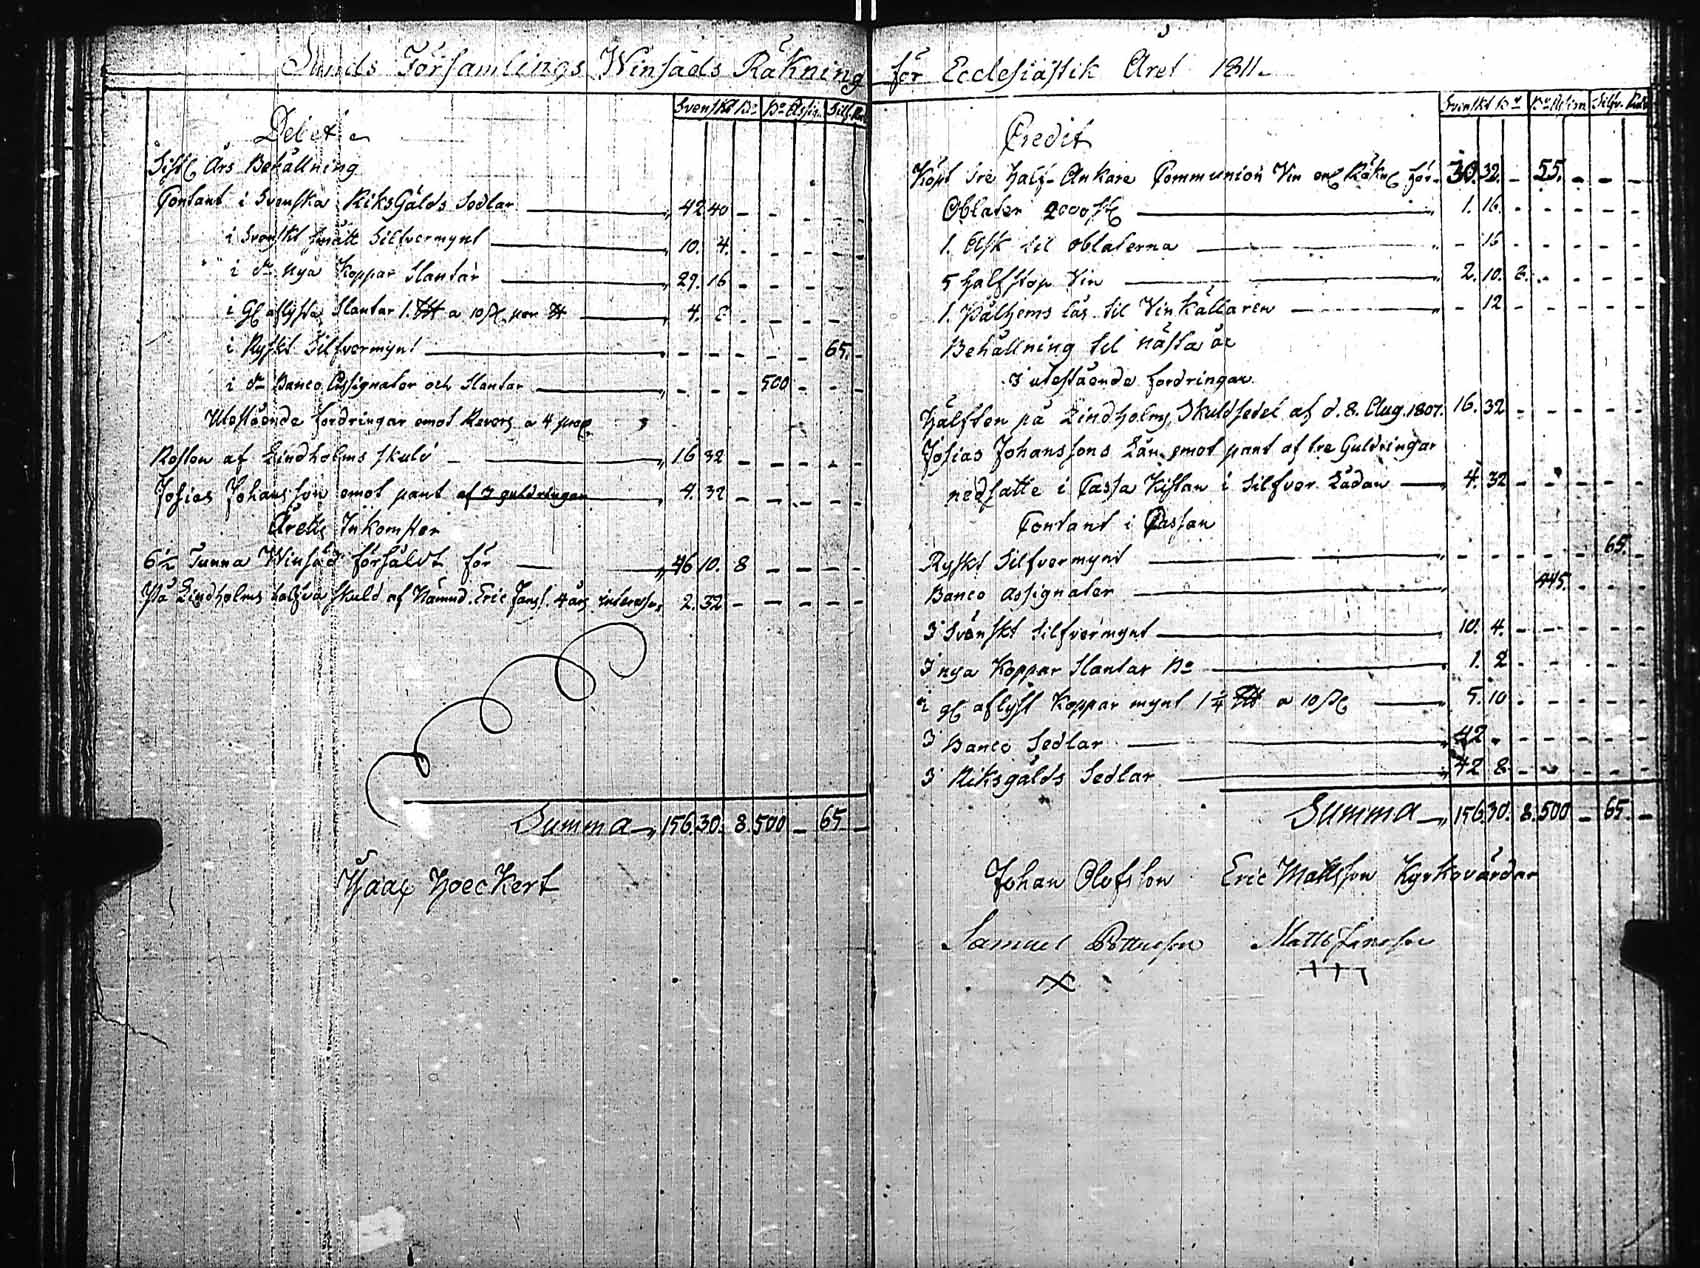 Sunds Församlings Winsäds Räkning för Ecclesiastik Året 1811.
Svenskt Bco Bco Assign. Silf. Rub
Debet
Sistl. Års Behållning
Contant i Svenska RiksGälds Sedlar 42 40 - - - - -
i Svenskt smått Silfvermynt 10. 4. - - - - -
i do nya Koppar Slantar 29. 16 - - - - -
i gl aflysta Slantar 1. a 10 per 4. - - - - -
i Ryskt Silfvermynt - - - - - 65. -
i do Banco Assignater och Slantar - - - 500 - - -
Utestående fordringar emot Revers a 4 proc
Resten af Lindholms skuld 16 32 - - - - -
Josias Johansson emot pant af 3 guldringar 4. 32 - - - - -
Årets Inkomster
6 1/2 Tunna Winsäd försåldt för 46 10. 8 - - - -
På Lindholms halfva skuld af Nämnd. Eric Janss. 4 års interesse 2. 32 - - - - -
Summa 156. 30. 8. 500 - 65 -
Isaac Hoeckert
Svenskt Bco Bco Assign Silfv. Rub
Credit
Köpt tre half-Ankare Communion Vin enl Räkn för 30. 32. - 55. - - -
Oblater 2000 st 1. 16. - - - - -
1. Ask til oblaterna - 16 - - - - -
5 halfstop Vin 2. 10. 8. - - - -
1. Pålhems lås til Vinkällaren - 12 - - - - -
Behållning til nästa år
I utestående fordringar
Hälften på Lindholms Skuldsedel af d. 8. Aug. 1807. 16. 32 - - - - -
Josias Johanssons Lån emot pant af tre Guldringar
nedsatte i Cassa Kistan i Silfver Lådan 4. 32 - - - - -
Contant i Cassan
Ryskt Silfvermynt - - - - - 65. -
Banco Assignater - - - 445. - - -
I Svenskt Silfvermynt 10. 4. - - - - -
I nya Koppar Slantar Bco 1. 2 - - - - -
i gl aflyst Koppar mynt 1 1/4 a 10 5. 10 - - - - -
I Banco Sedlar 42 - - - - - -
I Riksgälds Sedlar 42 8 - - - - -
Summa 156. 30. 8. 500 - 65. -
Johan Olofsson Eric Mattsson Kyrkovärdar
Samuel Pettersson Matts Jansson